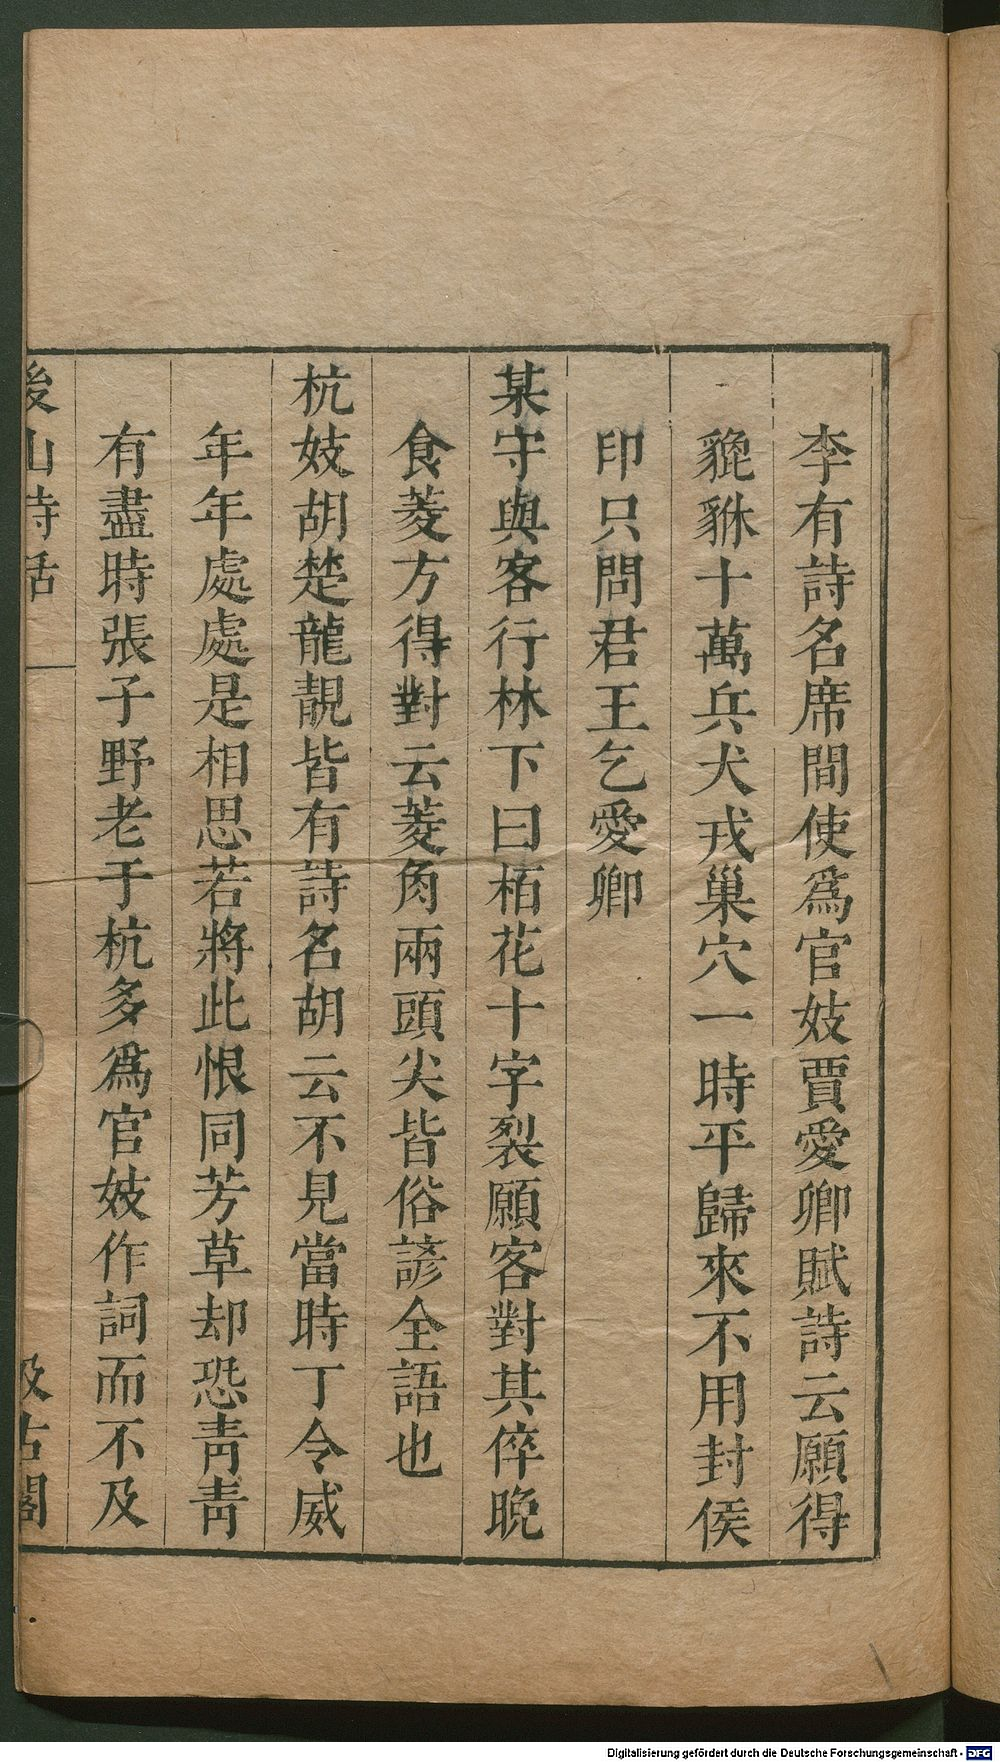 李有詩名席間使爲官妓賈愛卿賦詩云願得
貔貅十萬兵犬戎巢穴一時平歸來不用封侯
印只問君王乞愛卿
某守與客行林下曰栢花十字裂願客對其倅晚
食菱方得對云菱角兩頭尖皆俗諺全語也
杭妓胡楚龍靚皆有詩名胡云不見當時丁令威
年年處處是相思若將此恨同芳草却恐青青
有盡時張子野老于杭多爲官妓作詞而不及
後山詩話
汲古閣
Digitalisierung gefördert durch die Deutsche Forschungsgemeinschaft - DFG